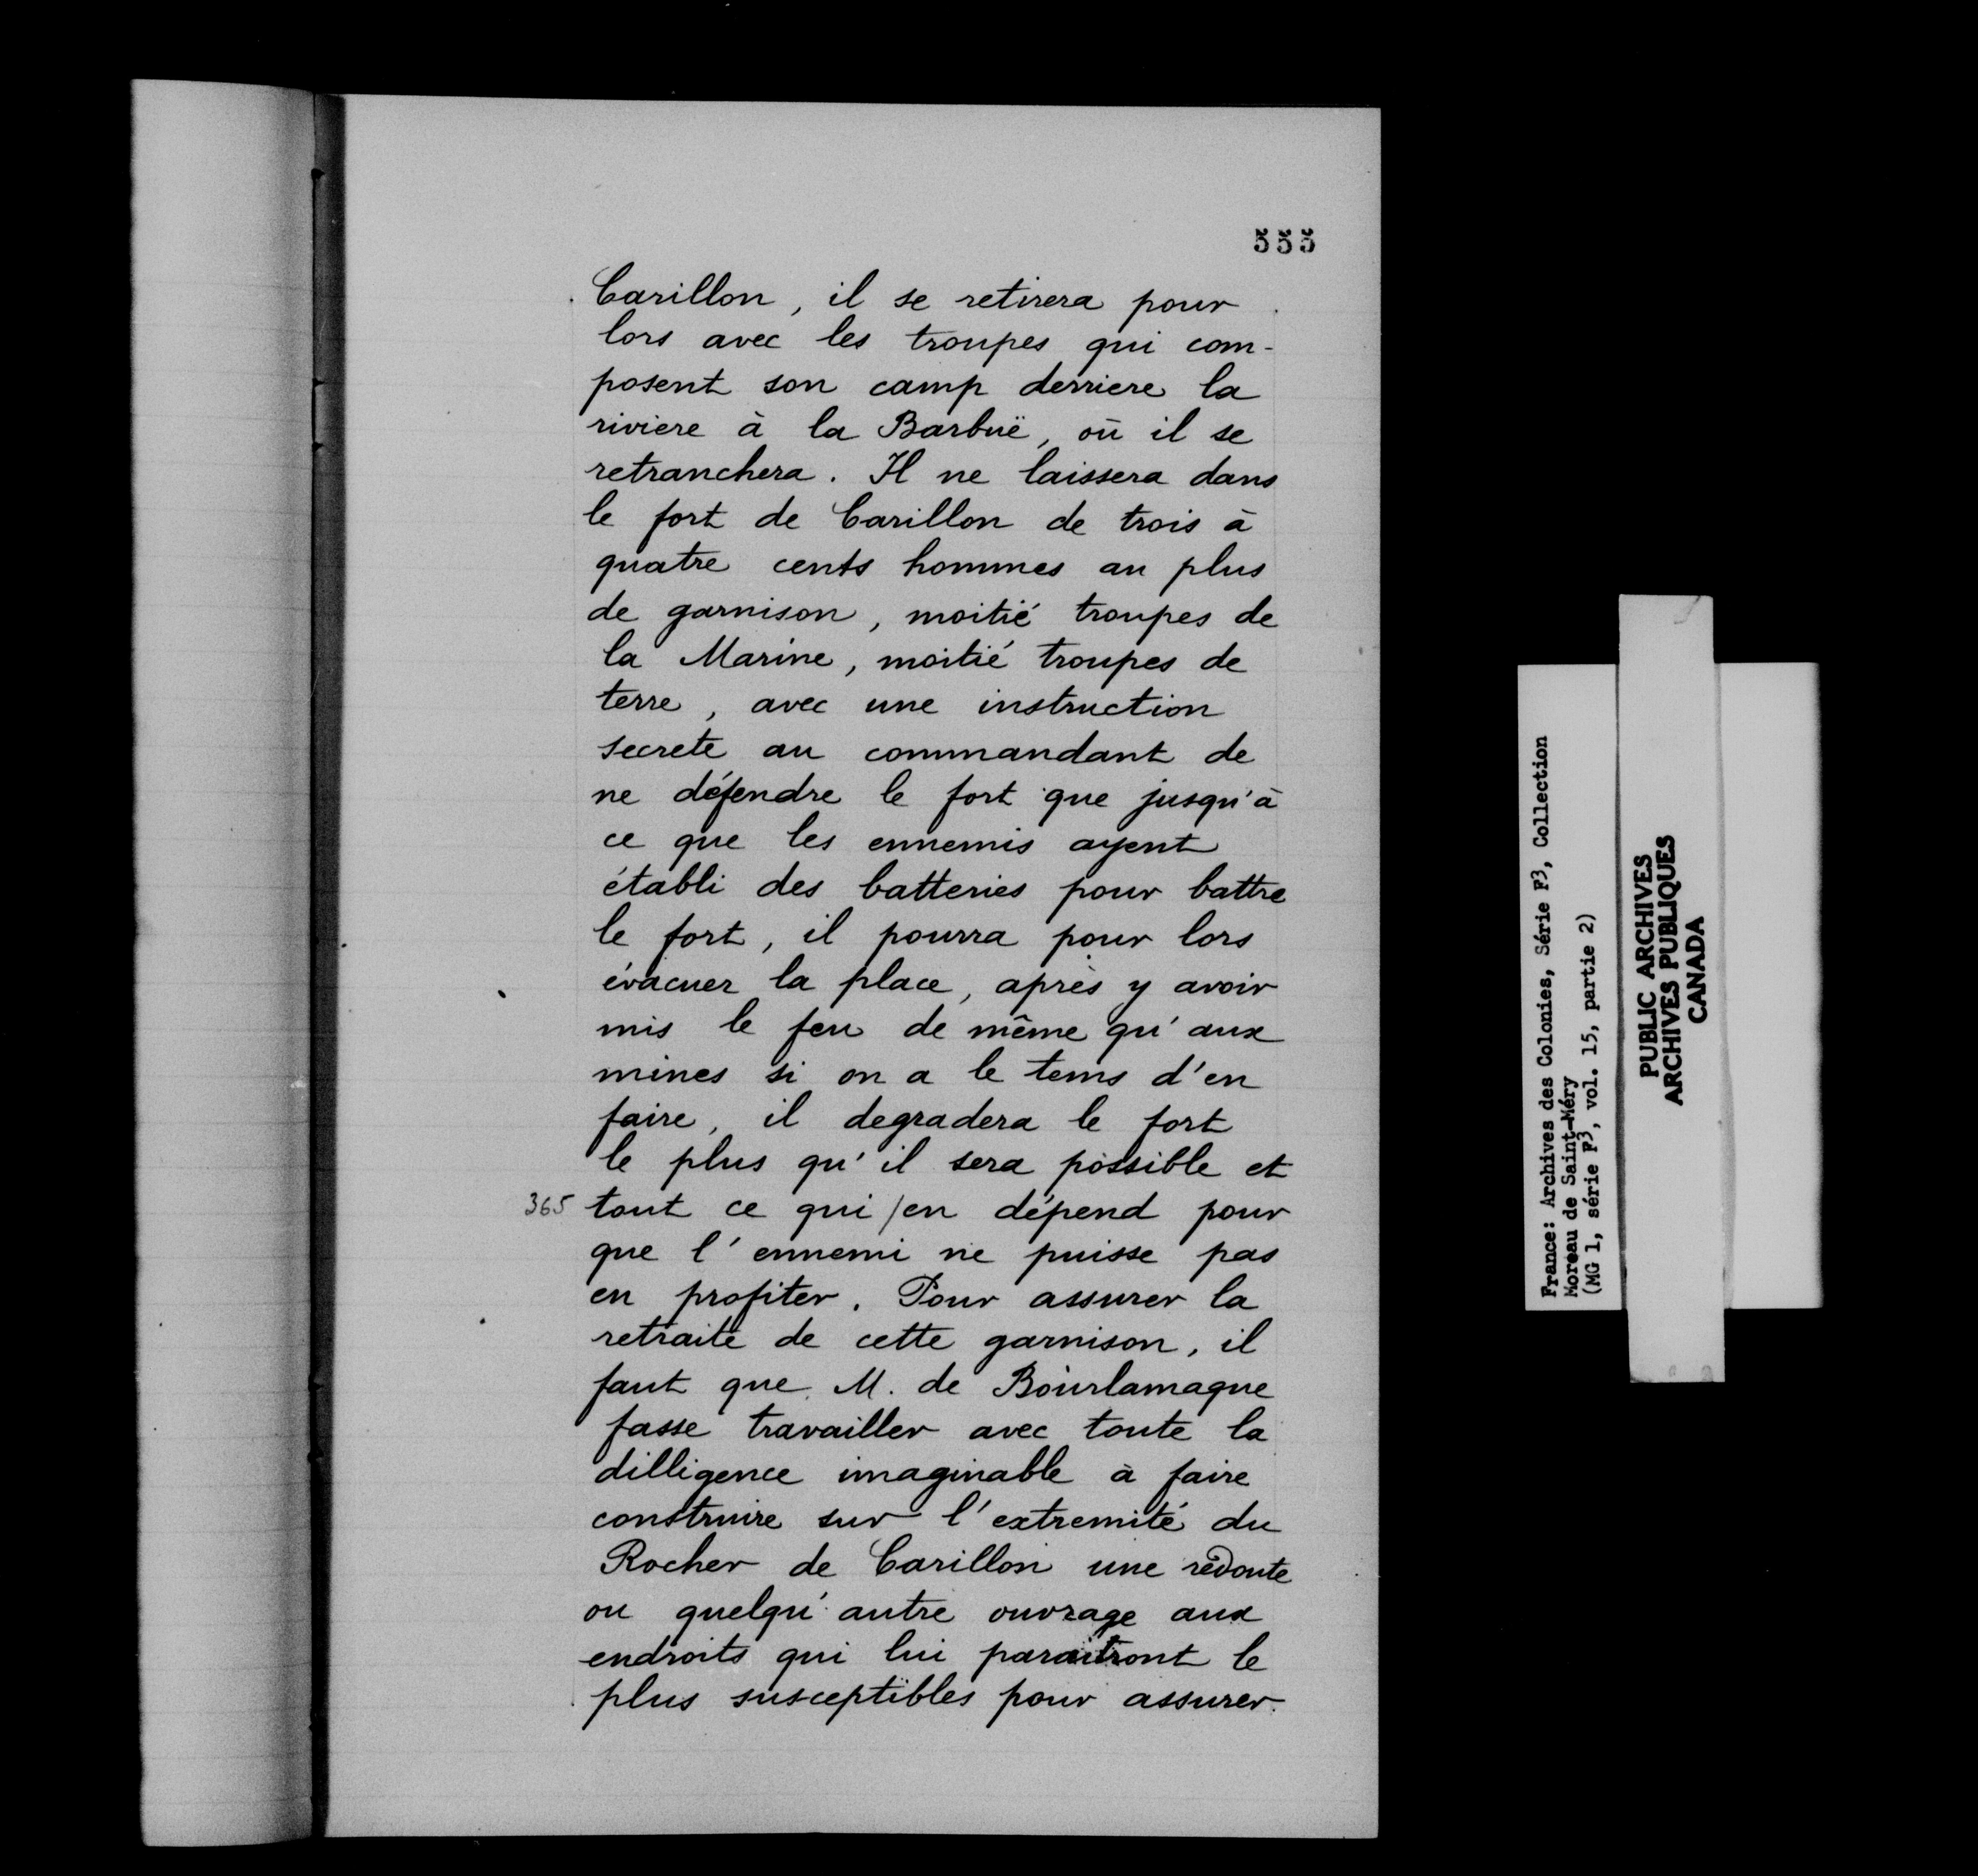 555
Carillon, il se retirera pour
lors avec les troupes qui com-
posent son camp derriere la
riviere à la Barbuë, où il se
retranchera. Il ne laissera dans
le fort de Carillon de trois à
quatre cents hommes au plus
de garnison, moitié troupes de
la Marine, moitié troupes de
terre, avec une instruction
secrete au commandant de
ne défendre le fort que jusqu'à
ce que les ennemis ayent
établi des batteries pour battre
le fort, il pourra pour lors
évacuer la place, après y avoir
mis le feu de même qu'aux
mines si on a le tems d'en
faire, il degradera le fort
le plus qu'il sera possible et
365 tout ce qui /en dépend pour
que l'ennemi ne puisse pas
en profiter. Pour assurer la
retraite de cette garnison, il
faut que M. de Bourlamaque
fasse travailler avec toute la
dilligence imaginable à faire
construire sur l'extremité du
Rocher de Carillon une redoute
ou quelqu'autre ouvrage aux
endroits qui lui paraitront le
plus susceptibles pour assurer
France: Archives des Colonies, Série F3, Collection
Moreau de Saint-Méry
(MG 1, série F3, vol. 15, partie 2)
PUBLIC ARCHIVES
ARCHIVES PUBLIQUES
CANADA